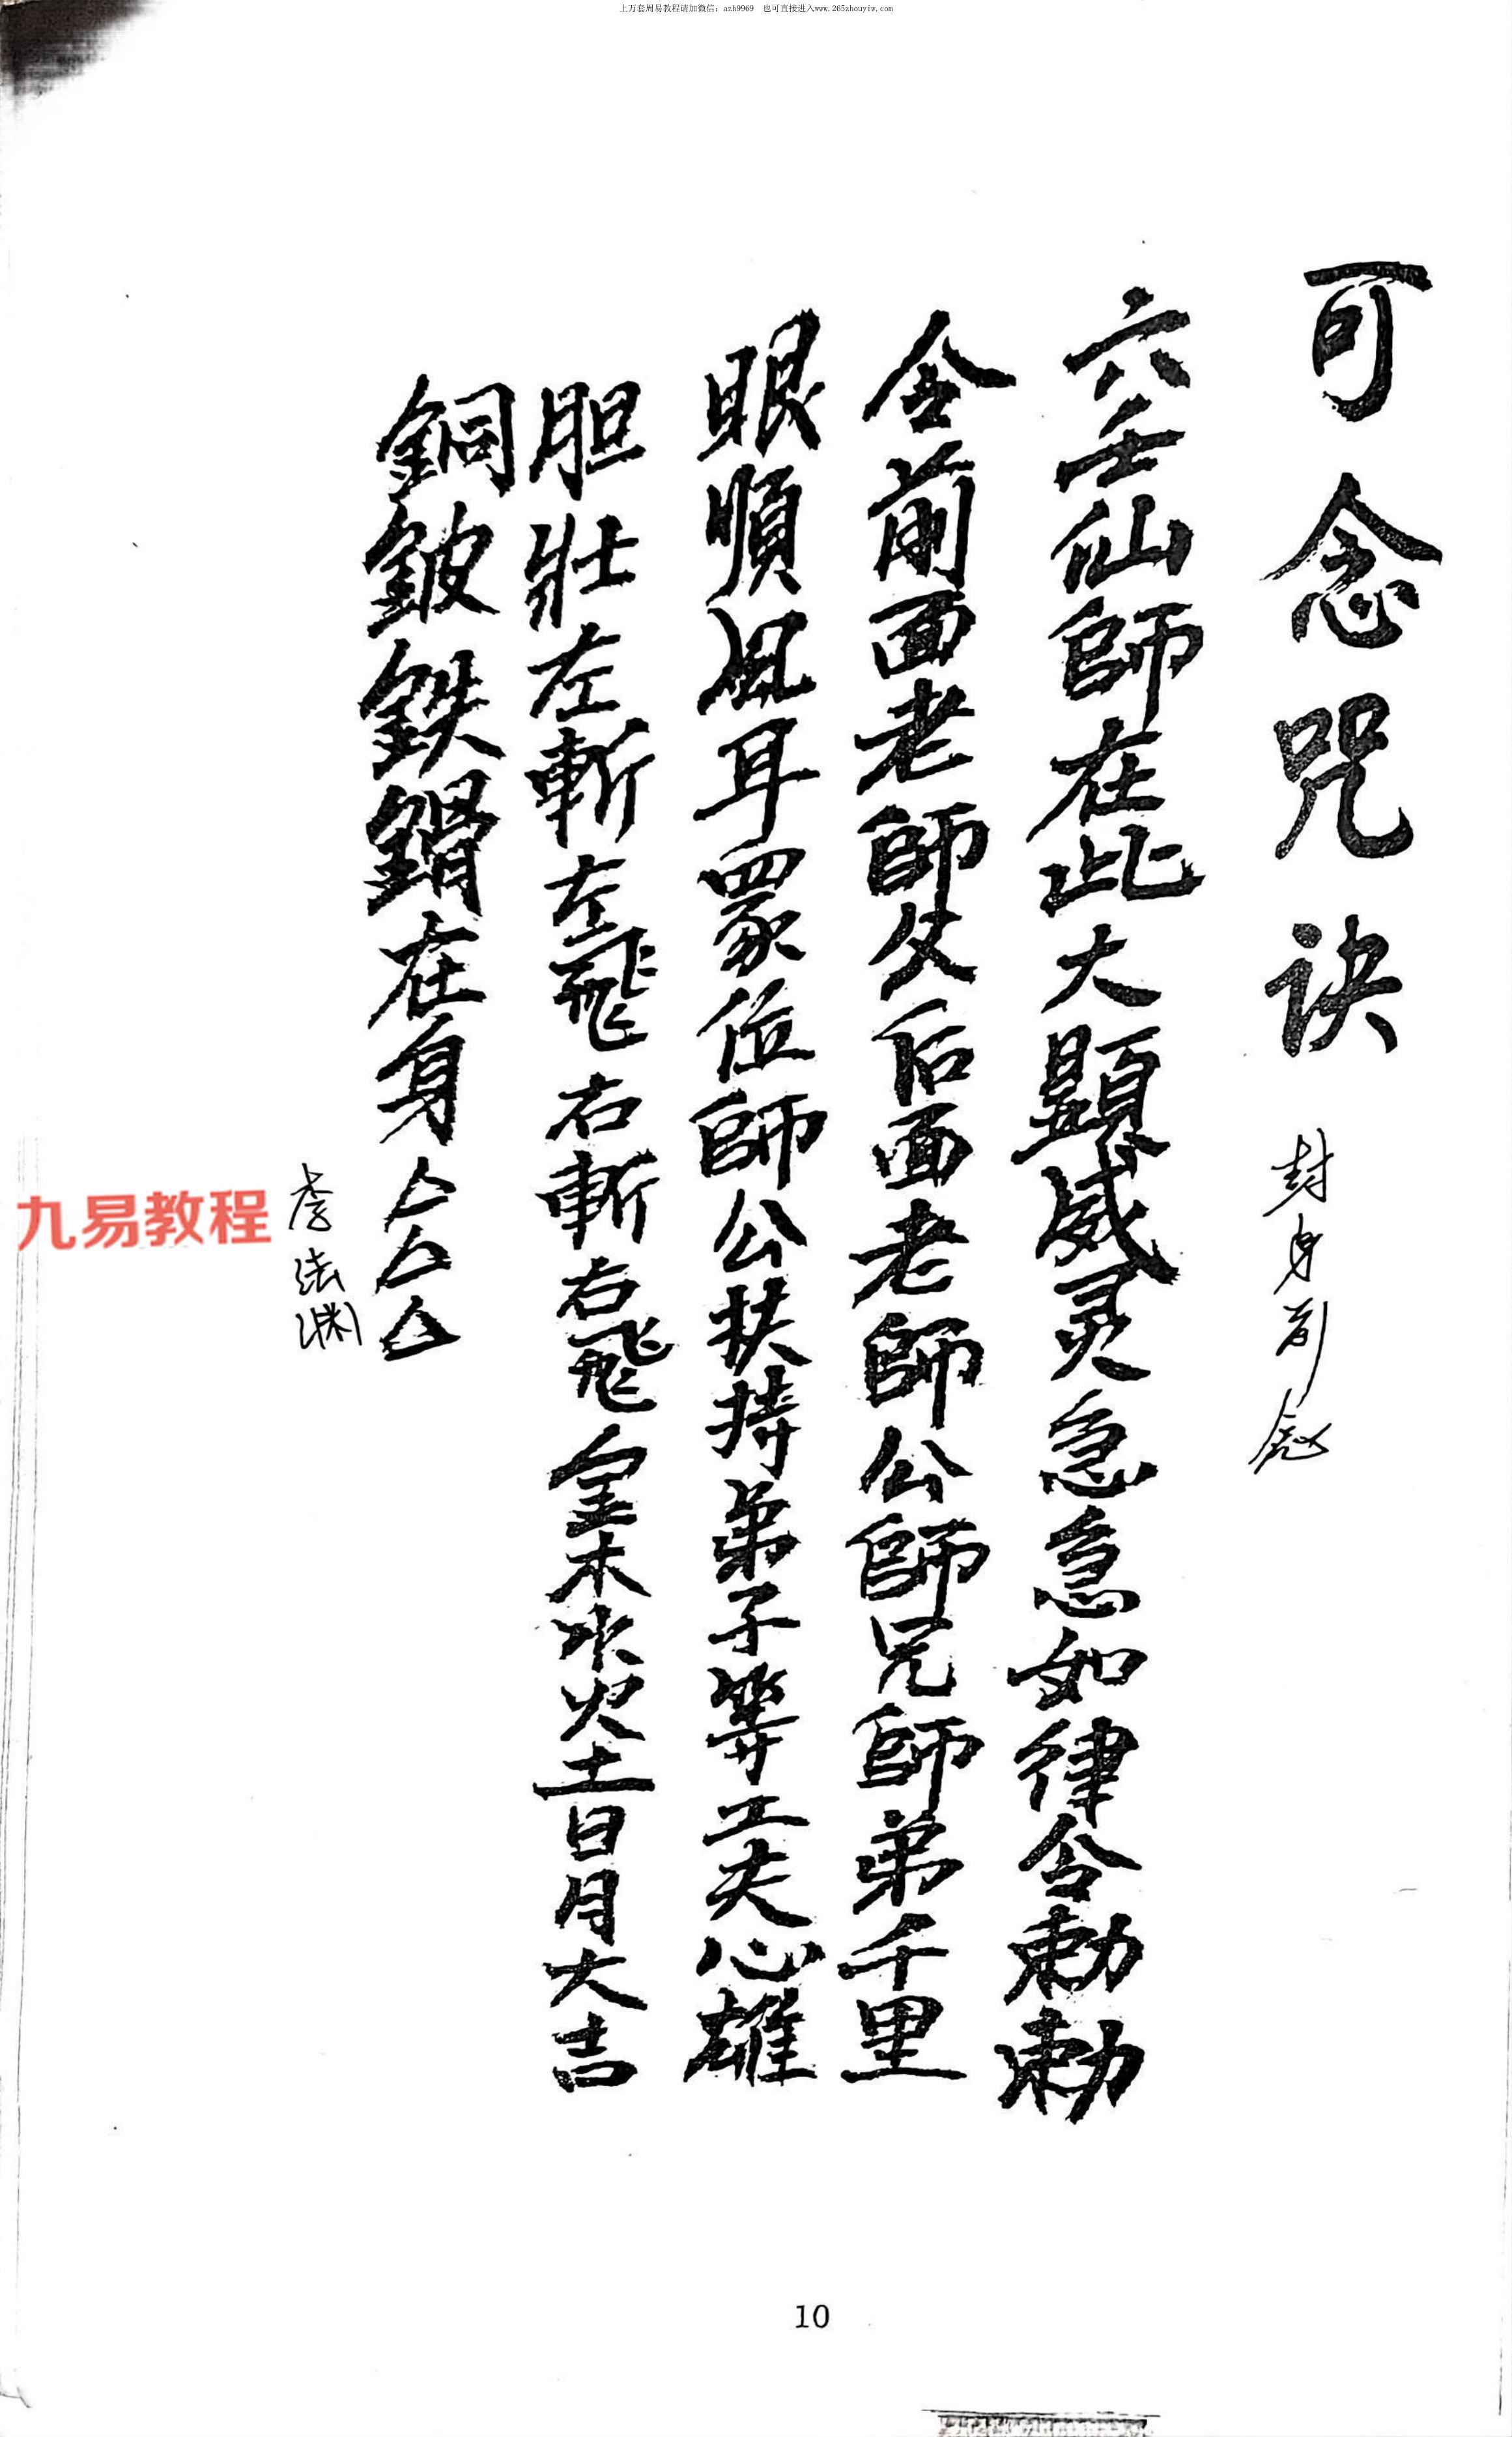 上万套周易教程请加微信：azh9969 也可直接进入www.265zhouyiw.com
可念咒诀
封身
六壬仙師在此大顯威灵急急如律令勅勅
令前面老師父后面老師公師兄師弟千里
眼順風耳眾位師公扶持弟子等工夫心雄
胆壯左斬左飛右斬右飛金木水火土日月大吉
銅皷鉄鑼在身
李法渊
九易教程
10